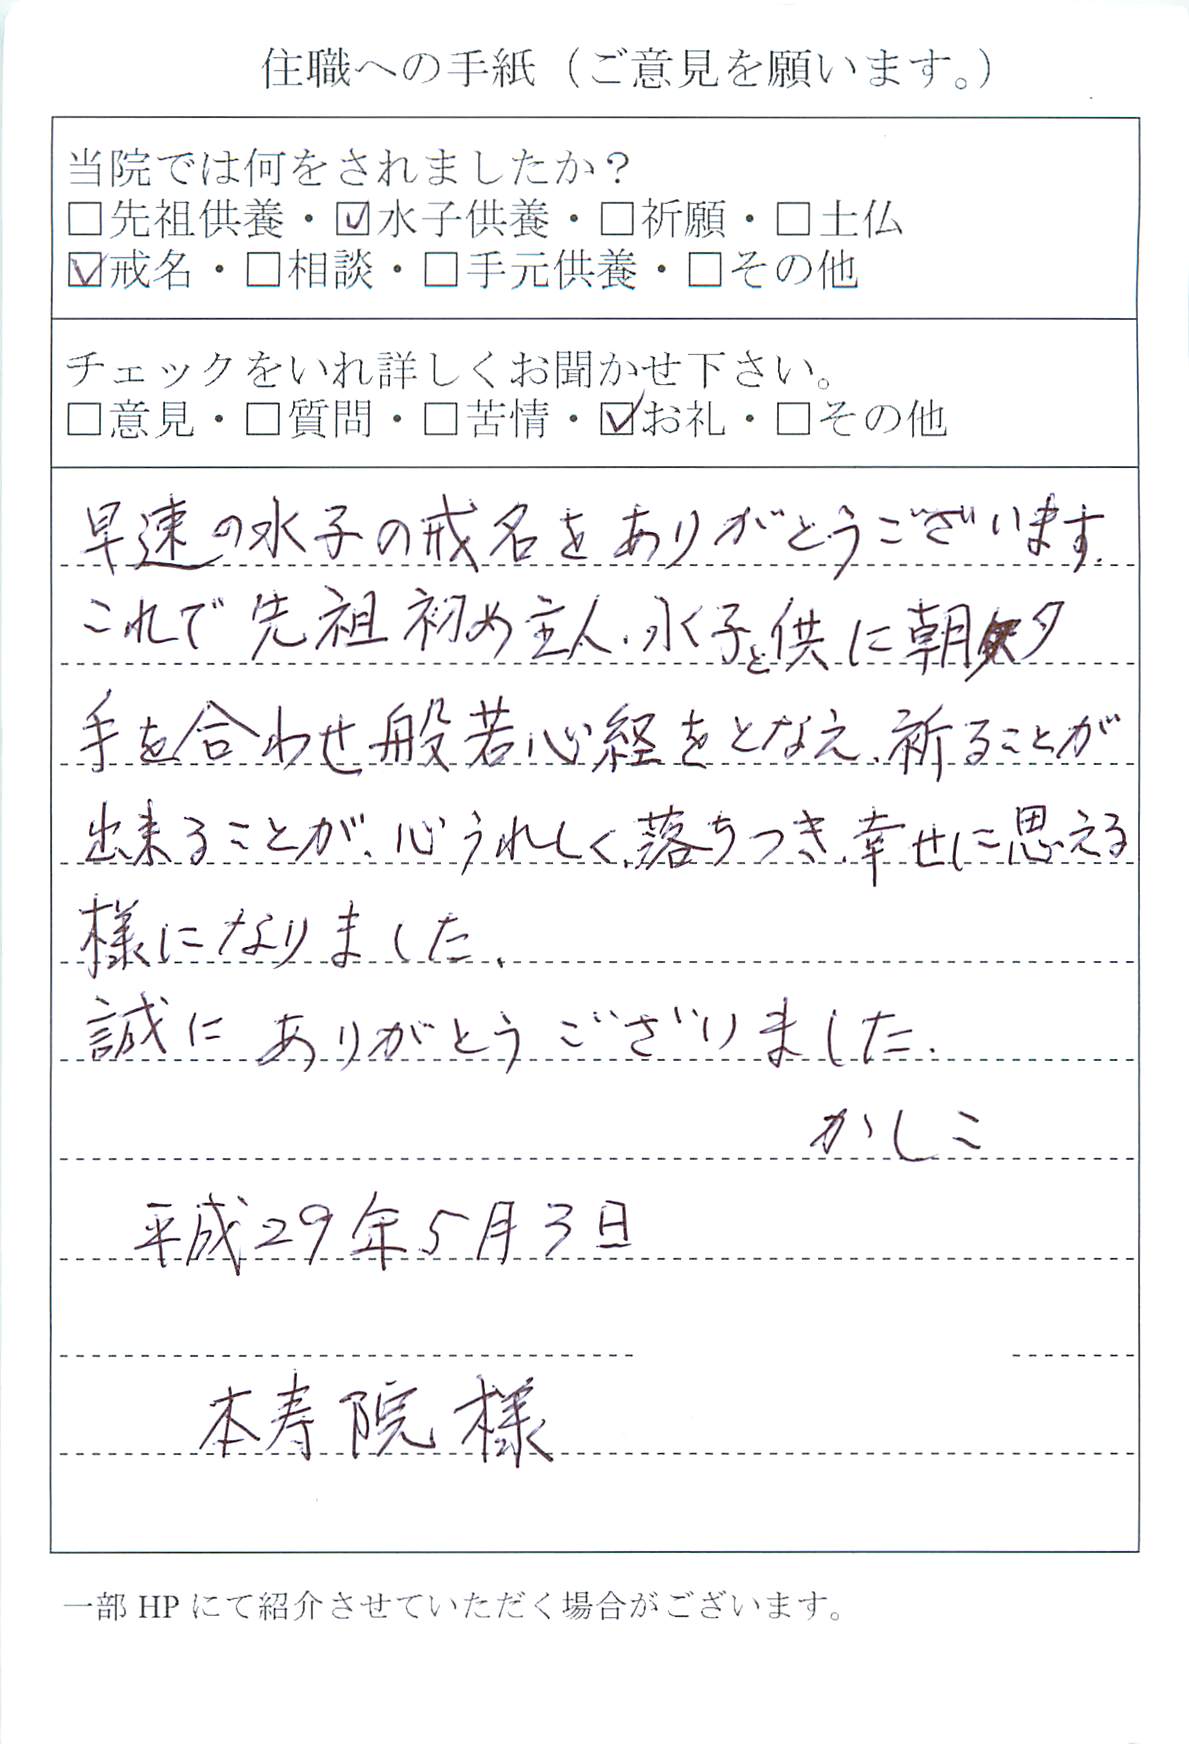 住職への手紙（ご意見を願います。）
当院では何をされましたか？
□先祖供養・☑水子供養・□祈願・□土仏
☑戒名・□相談・□手元供養・□その他
チェックをいれ詳しくお聞かせ下さい。
□意見・□質問・□苦情・☑お礼・□その他
早速の水子の戒名をありがとうございます.
これで先祖初め主人、水子と供に朝夕
手を合わせ般若心経をとなえ、祈ることが
出来ることが、心うれしく、落ちつき、幸せに思える
様になりました、
誠にありがとうございました.
かしこ
平成29年5月3日
本寿院様
一部 HP にて紹介させていただく場合がございます。